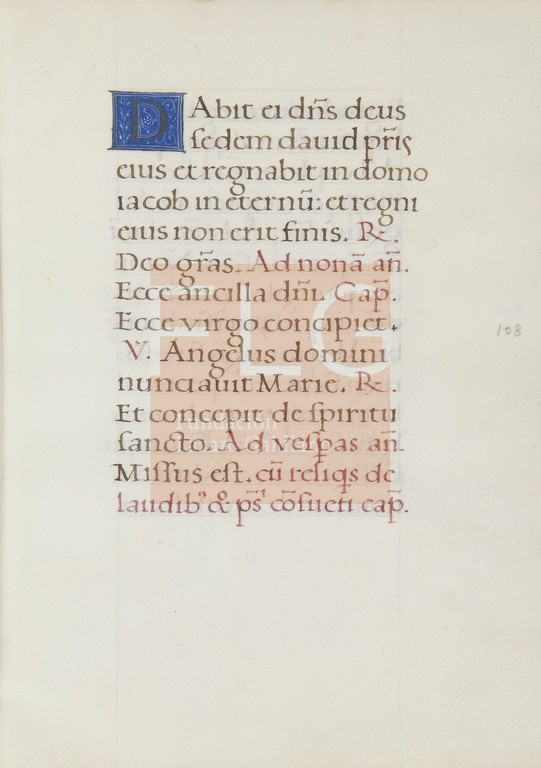 DAbit ei dn̄s deus
sedem dauid pr̄is
eius et regnabit in domo
iacob in eternū: et regni
eius non erit finis. ℞.
Deo gr̄as. Ad nonā an̄.
Ecce ancilla dn̄i. Cap̄.
Ecce virgo concipiet.
V. Angelus domini
nunciauit Marie. ℞.
Et concepit de spiritu
sancto. Ad vesp̄as an̄.
Missus est. cū reliq̄s de
laudib⁹ & ps̄ cōsueti cap̄.
108
FLG
Fundación